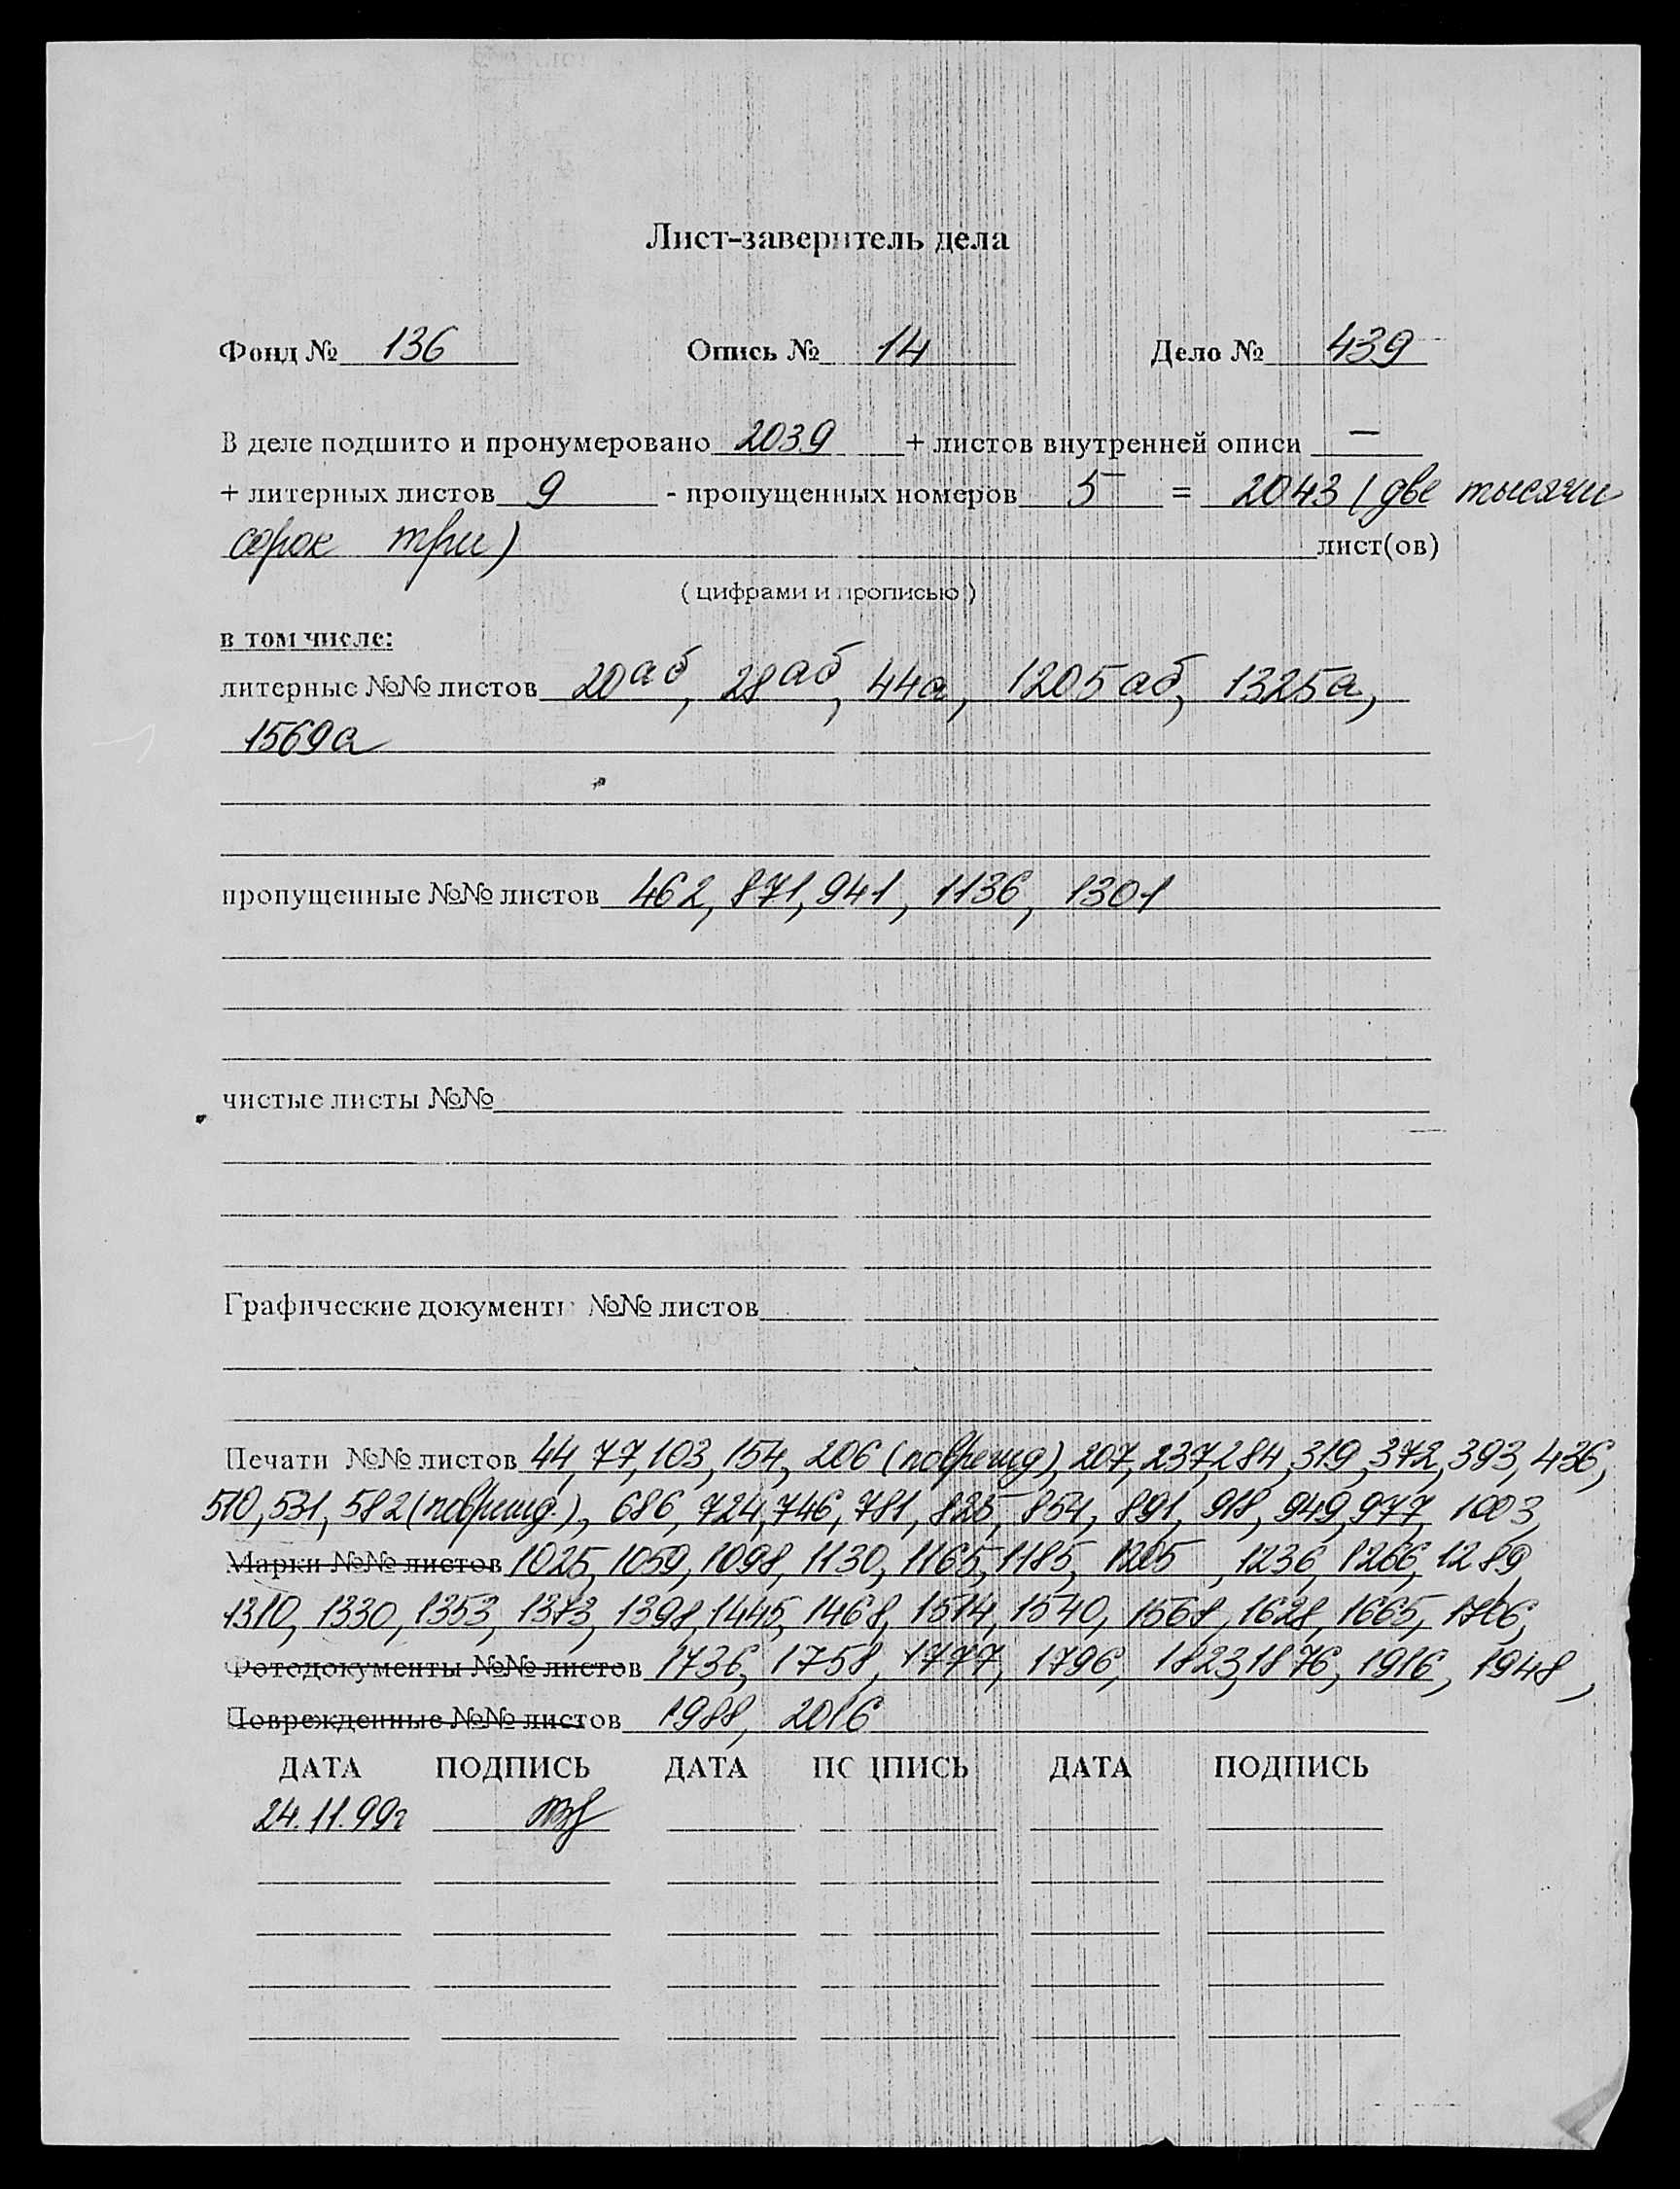 Лист-заверитель дела
Фонд № 136 Опись № 14 Дело № 439
В деле подшито и пронумеровано 2039 + листов внутренней описи —
+ литерных листов 9 - пропущенных номеров 5 = 2043 (две тысячи
сорок три) лист(ов)
(цифрами и прописью)
в том числе:
литерные №№ листов 20аб, 28аб, 44а, 1205аб, 1325а,
1569а
пропущенные №№ листов 462, 871, 941, 1136, 1301
чистые листы №№
Графические документы №№ листов
Печати №№ листов 44, 77, 103, 154, 206 (поврежд), 207, 237, 284, 319, 372, 393, 436,
510, 531, 582 (поврежд.), 686, 724, 746, 781, 825, 854, 891, 918, 949, 977, 1003,
Марки №№ листов 1025, 1059, 1098, 1130, 1165, 1185, 1205, 1236, 1266, 1289,
1310, 1330, 1353, 1373, 1398, 1445, 1468, 1514, 1540, 1568, 1628, 1665, 1706,
Фотодокументы №№ листов 1736, 1758, 1777, 1796, 1823, 1876, 1916, 1948,
Поврежденные №№ листов 1988, 2016
ДАТА ПОДПИСЬ ДАТА ПОДПИСЬ ДАТА ПОДПИСЬ
24.11.99г